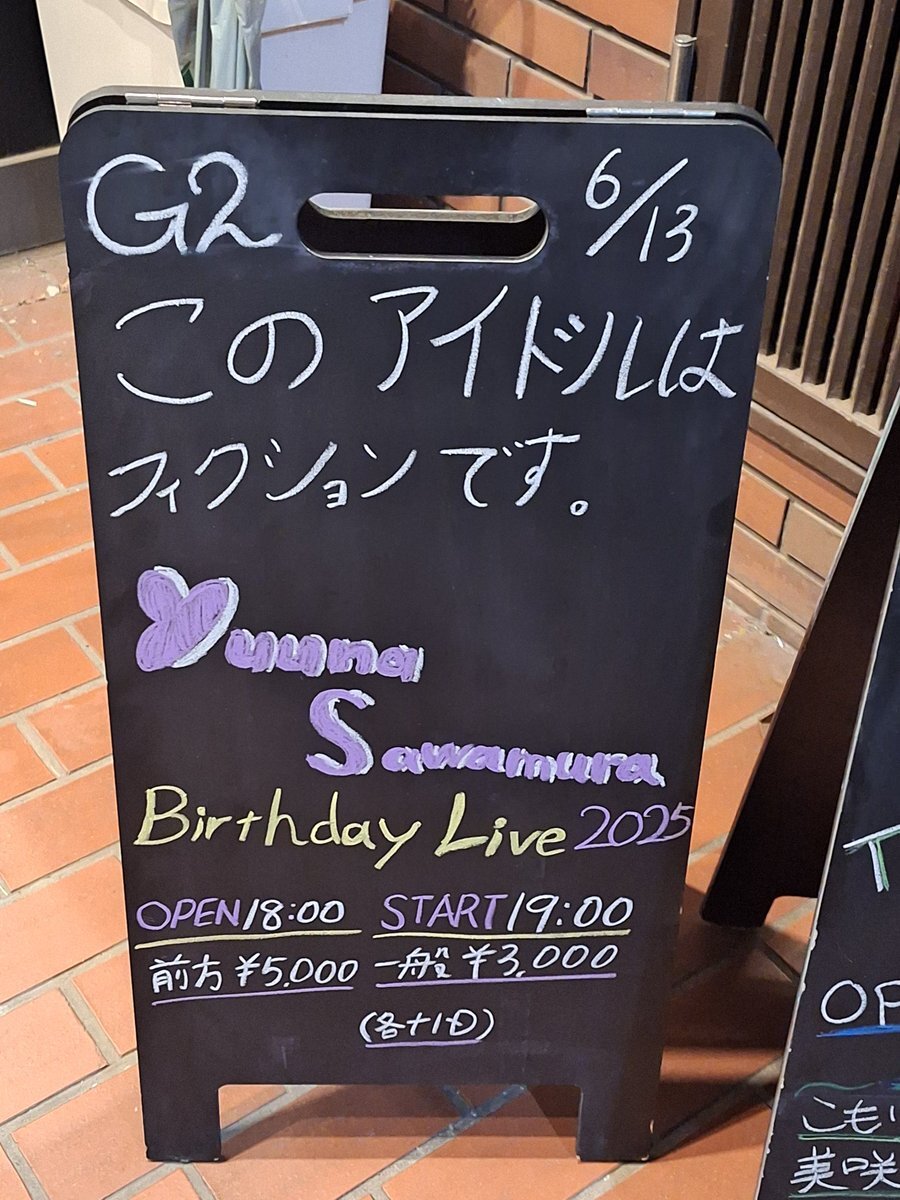 G2 6/13
このアイドルは
フィクションです。
Yuuna
Sawamura
Birthday Live 2025
OPEN18:00 START19:00
前方¥5,000 一般¥3,000
(各+1D)
T
OP
こもり
美咲